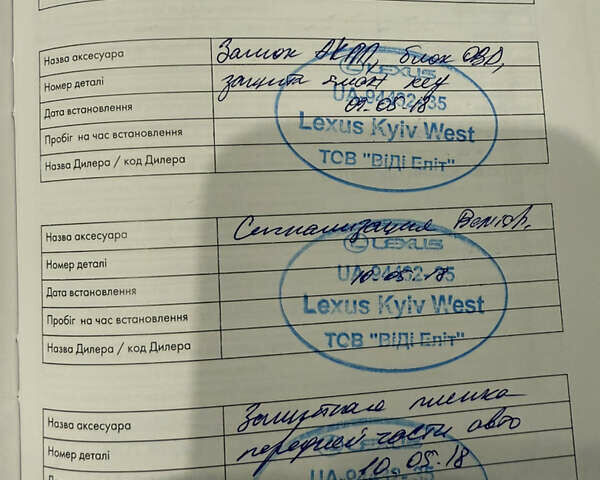 Назва аксесуара Замок АКПП, блок OBD,
Номер деталі защита smart key
Дата встановлення 09.05.18
Пробіг на час встановлення
Назва Дилера / код Дилера
LEXUS
UA-94462-35
Lexus Kyiv West
ТОВ "ВІДІ Еліт"
Назва аксесуара Сигнализация
Номер деталі
Дата встановлення 10.05.18
Пробіг на час встановлення
Назва Дилера / код Дилера
LEXUS
UA-94462-35
Lexus Kyiv West
ТОВ "ВІДІ Еліт"
Назва аксесуара Защитная пленка
Номер деталі передней части авто
10.05.18
LEXUS